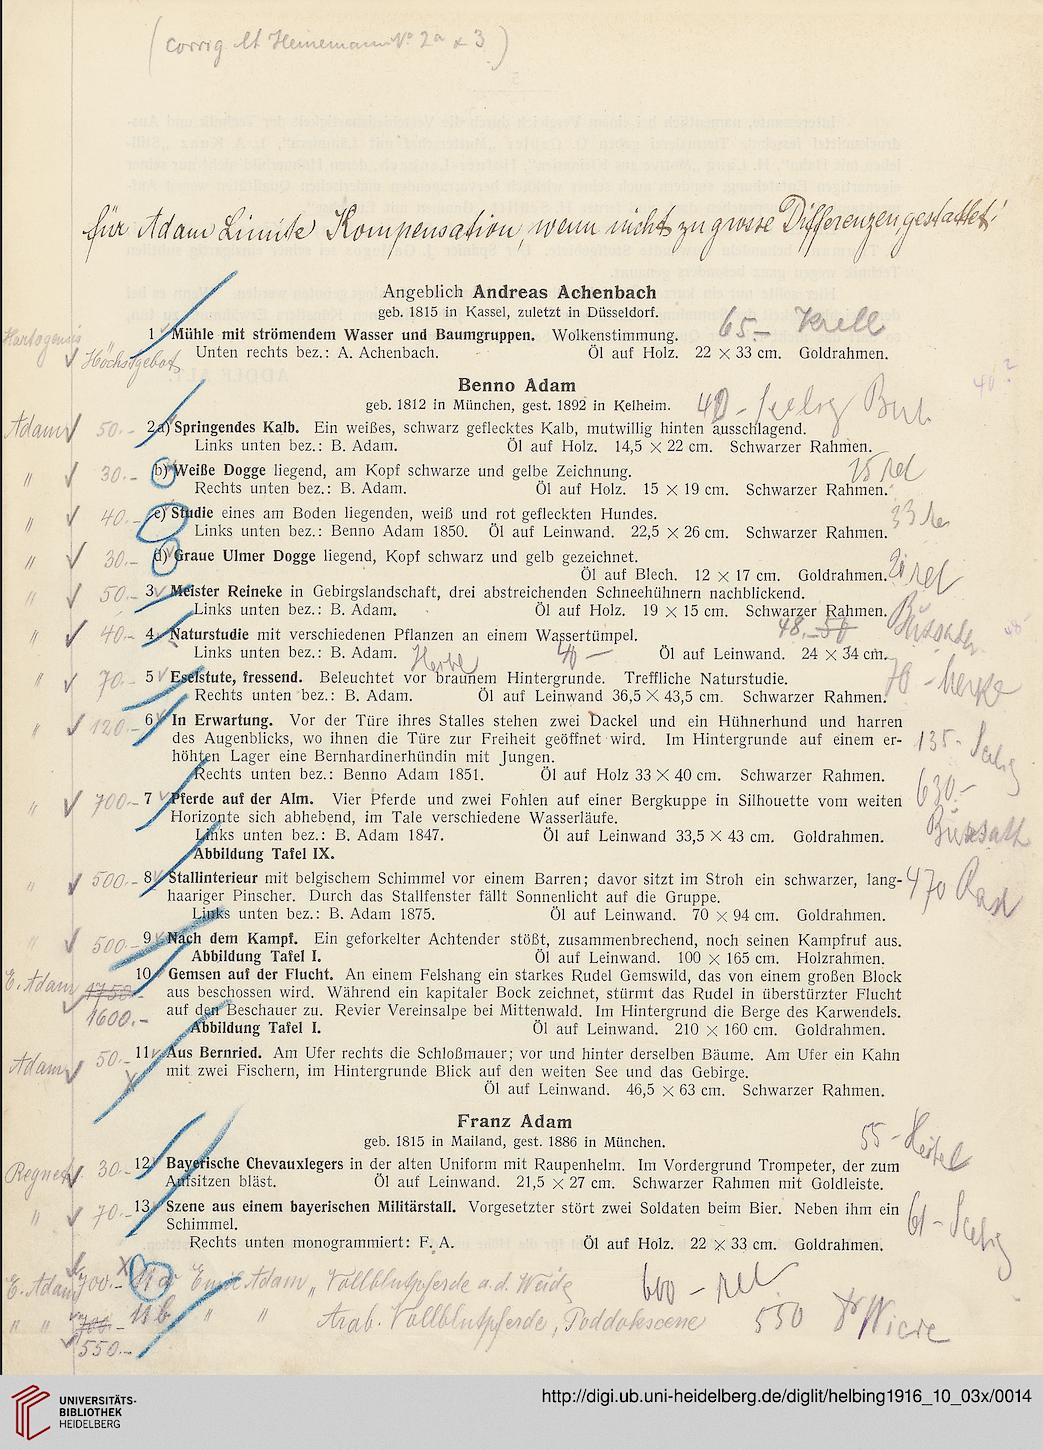 (corrig lt Heinemann No 2a & 3)
für Adam Limite Kompensation, wenn nicht zu grosse Differenzen, gestattet!
Angeblich Andreas Achenbach
geb. 1815 in Kassel, zuletzt in Düsseldorf.
1 Mühle mit strömendem Wasser und Baumgruppen. Wolkenstimmung. 65.- Krell
Höchstgebot Unten rechts bez.: A. Achenbach. Öl auf Holz. 22 × 33 cm. Goldrahmen.
Benno Adam 40?
geb. 1812 in München, gest. 1892 in Kelheim.
Adam 50.- 2a) Springendes Kalb. Ein weißes, schwarz geflecktes Kalb, mutwillig hinten ausschlagend.
Links unten bez.: B. Adam. Öl auf Holz. 14,5 × 22 cm. Schwarzer Rahmen.
" 30.- b) Weiße Dogge liegend, am Kopf schwarze und gelbe Zeichnung. 15 ret
Rechts unten bez.: B. Adam. Öl auf Holz. 15 × 19 cm. Schwarzer Rahmen.
" 40.- c) Studie eines am Boden liegenden, weiß und rot gefleckten Hundes. 33
Links unten bez.: Benno Adam 1850. Öl auf Leinwand. 22,5 × 26 cm. Schwarzer Rahmen.
" 30.- d) Graue Ulmer Dogge liegend, Kopf schwarz und gelb gezeichnet.
Öl auf Blech. 12 × 17 cm. Goldrahmen. ret
" 50.- 3 Meister Reineke in Gebirgslandschaft, drei abstreichenden Schneehühnern nachblickend.
Links unten bez.: B. Adam. Öl auf Holz. 19 × 15 cm. Schwarzer Rahmen.
" 40.- 4 Naturstudie mit verschiedenen Pflanzen an einem Wassertümpel. 48.- 50
Links unten bez.: B. Adam. 40 — Öl auf Leinwand. 24 × 34 cm.
" 70.- 5 Eselstute, fressend. Beleuchtet vor braunem Hintergrunde. Treffliche Naturstudie.
Rechts unten bez.: B. Adam. Öl auf Leinwand 36,5 × 43,5 cm. Schwarzer Rahmen. 70 -
" 120.- 6 In Erwartung. Vor der Türe ihres Stalles stehen zwei Dackel und ein Hühnerhund und harren
des Augenblicks, wo ihnen die Türe zur Freiheit geöffnet wird. Im Hintergrunde auf einem er- 135.-
höhten Lager eine Bernhardinerhündin mit Jungen.
Rechts unten bez.: Benno Adam 1851. Öl auf Holz 33 × 40 cm. Schwarzer Rahmen.
" 700.- 7 Pferde auf der Alm. Vier Pferde und zwei Fohlen auf einer Bergkuppe in Silhouette vom weiten 630.-
Horizonte sich abhebend, im Tale verschiedene Wasserläufe.
Links unten bez.: B. Adam 1847. Öl auf Leinwand 33,5 × 43 cm. Goldrahmen.
Abbildung Tafel IX.
" 500.- 8 Stallinterieur mit belgischem Schimmel vor einem Barren; davor sitzt im Stroh ein schwarzer, lang- 470
haariger Pinscher. Durch das Stallfenster fällt Sonnenlicht auf die Gruppe.
Links unten bez.: B. Adam 1875. Öl auf Leinwand. 70 × 94 cm. Goldrahmen.
" 500.- 9 Nach dem Kampf. Ein geforkelter Achtender stößt, zusammenbrechend, noch seinen Kampfruf aus.
Abbildung Tafel I. Öl auf Leinwand. 100 × 165 cm. Holzrahmen.
E. Adam 1750.- 10 Gemsen auf der Flucht. An einem Felshang ein starkes Rudel Gemswild, das von einem großen Block
aus beschossen wird. Während ein kapitaler Bock zeichnet, stürmt das Rudel in überstürzter Flucht
1600.- auf den Beschauer zu. Revier Vereinsalpe bei Mittenwald. Im Hintergrund die Berge des Karwendels.
Abbildung Tafel I. Öl auf Leinwand. 210 × 160 cm. Goldrahmen.
Adam 50.- 11 Aus Bernried. Am Ufer rechts die Schloßmauer; vor und hinter derselben Bäume. Am Ufer ein Kahn
mit zwei Fischern, im Hintergrunde Blick auf den weiten See und das Gebirge.
Öl auf Leinwand. 46,5 × 63 cm. Schwarzer Rahmen.
Franz Adam
geb. 1815 in Mailand, gest. 1886 in München. 55 -
30.- 12 Bayerische Chevauxlegers in der alten Uniform mit Raupenhelm. Im Vordergrund Trompeter, der zum
Aufsitzen bläst. Öl auf Leinwand. 21,5 × 27 cm. Schwarzer Rahmen mit Goldleiste.
" 70.- 13 Szene aus einem bayerischen Militärstall. Vorgesetzter stört zwei Soldaten beim Bier. Neben ihm ein 61 -
Schimmel.
Rechts unten monogrammiert: F. A. Öl auf Holz. 22 × 33 cm. Goldrahmen.
E. Adam 700.- 11a Emil Adam „ Vollblutpferde a.d. Weide 600 - ret
" " 700.- 11b " " Arab. Vollblutpferde, Paddokscene 550
550.-
UNIVERSITÄTS-
BIBLIOTHEK
HEIDELBERG
http://digi.ub.uni-heidelberg.de/diglit/helbing1916_10_03x/0014